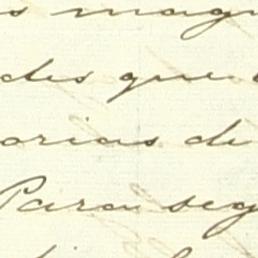 s magu
des que
orias de
Para seg